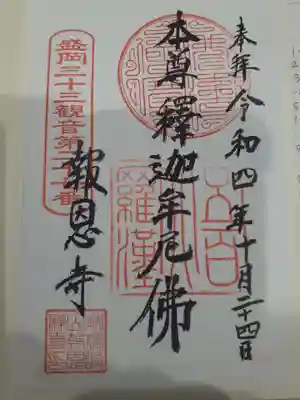 奉拝 令和四年十月二十四日
本尊釋迦牟尼佛
五百羅漢
盛岡三十三観音第二十番
報恩寺